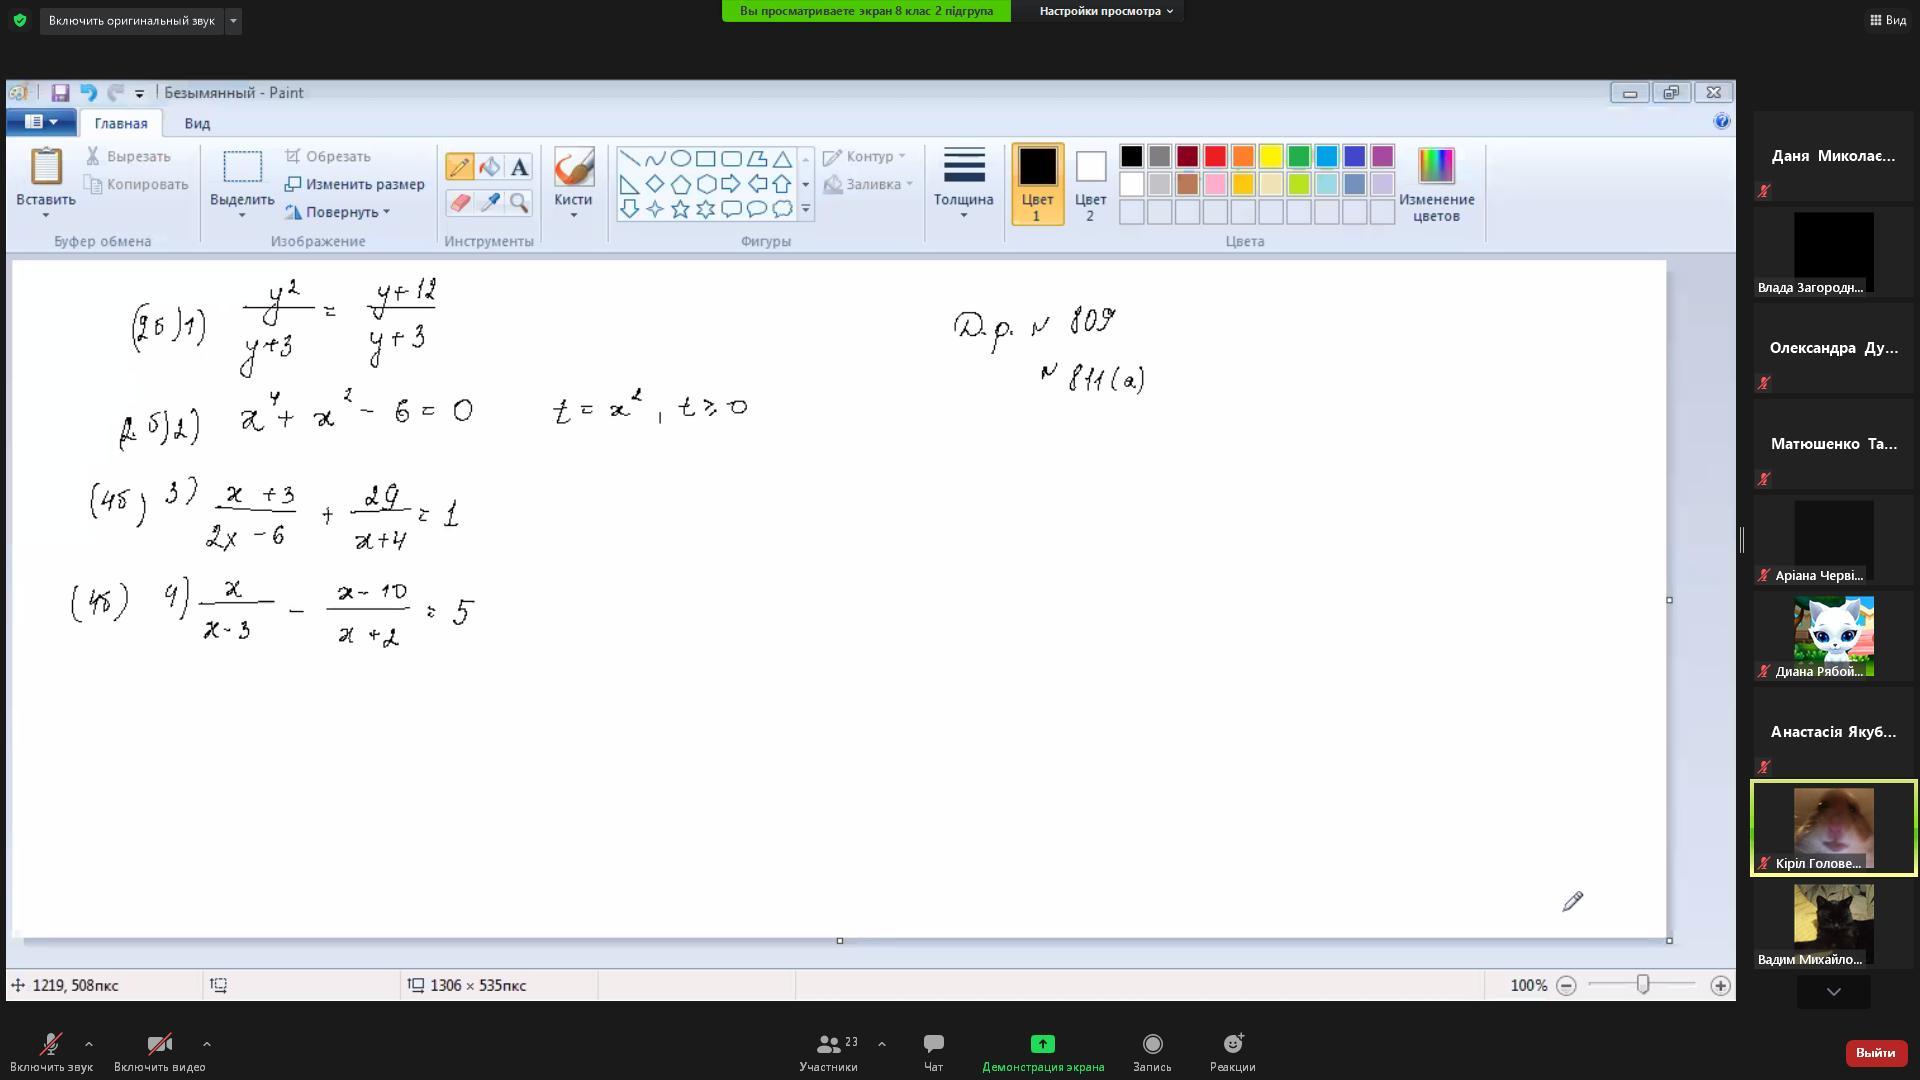 Включить оригинальный звук
Вы просматриваете экран 8 клас 2 підгрупа
Настройки просмотра
Вид
Безымянный - Paint
Главная
Вид
Вставить
Вырезать
Копировать
Буфер обмена
Выделить
Обрезать
Изменить размер
Повернуть
Изображение
A
Инструменты
Кисти
Контур
Заливка
Фигуры
Толщина
Цвет 1
Цвет 2
Изменение цветов
Цвета
(2б)1) y²/(y+3) = (y+12)/(y+3)
(2б)2) x⁴ + x² - 6 = 0 t = x², t ≥ 0
(4б) 3) (x+3)/(2x-6) + 29/(x+4) = 1
(4б) 4) x/(x-3) - (x-10)/(x+2) = 5
Д.р. N 809
N 811(а)
Даня Миколає...
Влада Загородн...
Олександра Ду...
Матюшенко Та...
Аріана Черві...
Диана Рябой...
Анастасія Якуб...
Кіріл Голове...
Вадим Михайло...
1219, 508пкс
1306 × 535пкс
100%
Включить звук
Включить видео
Участники
23
Чат
Демонстрация экрана
Запись
Реакции
Выйти